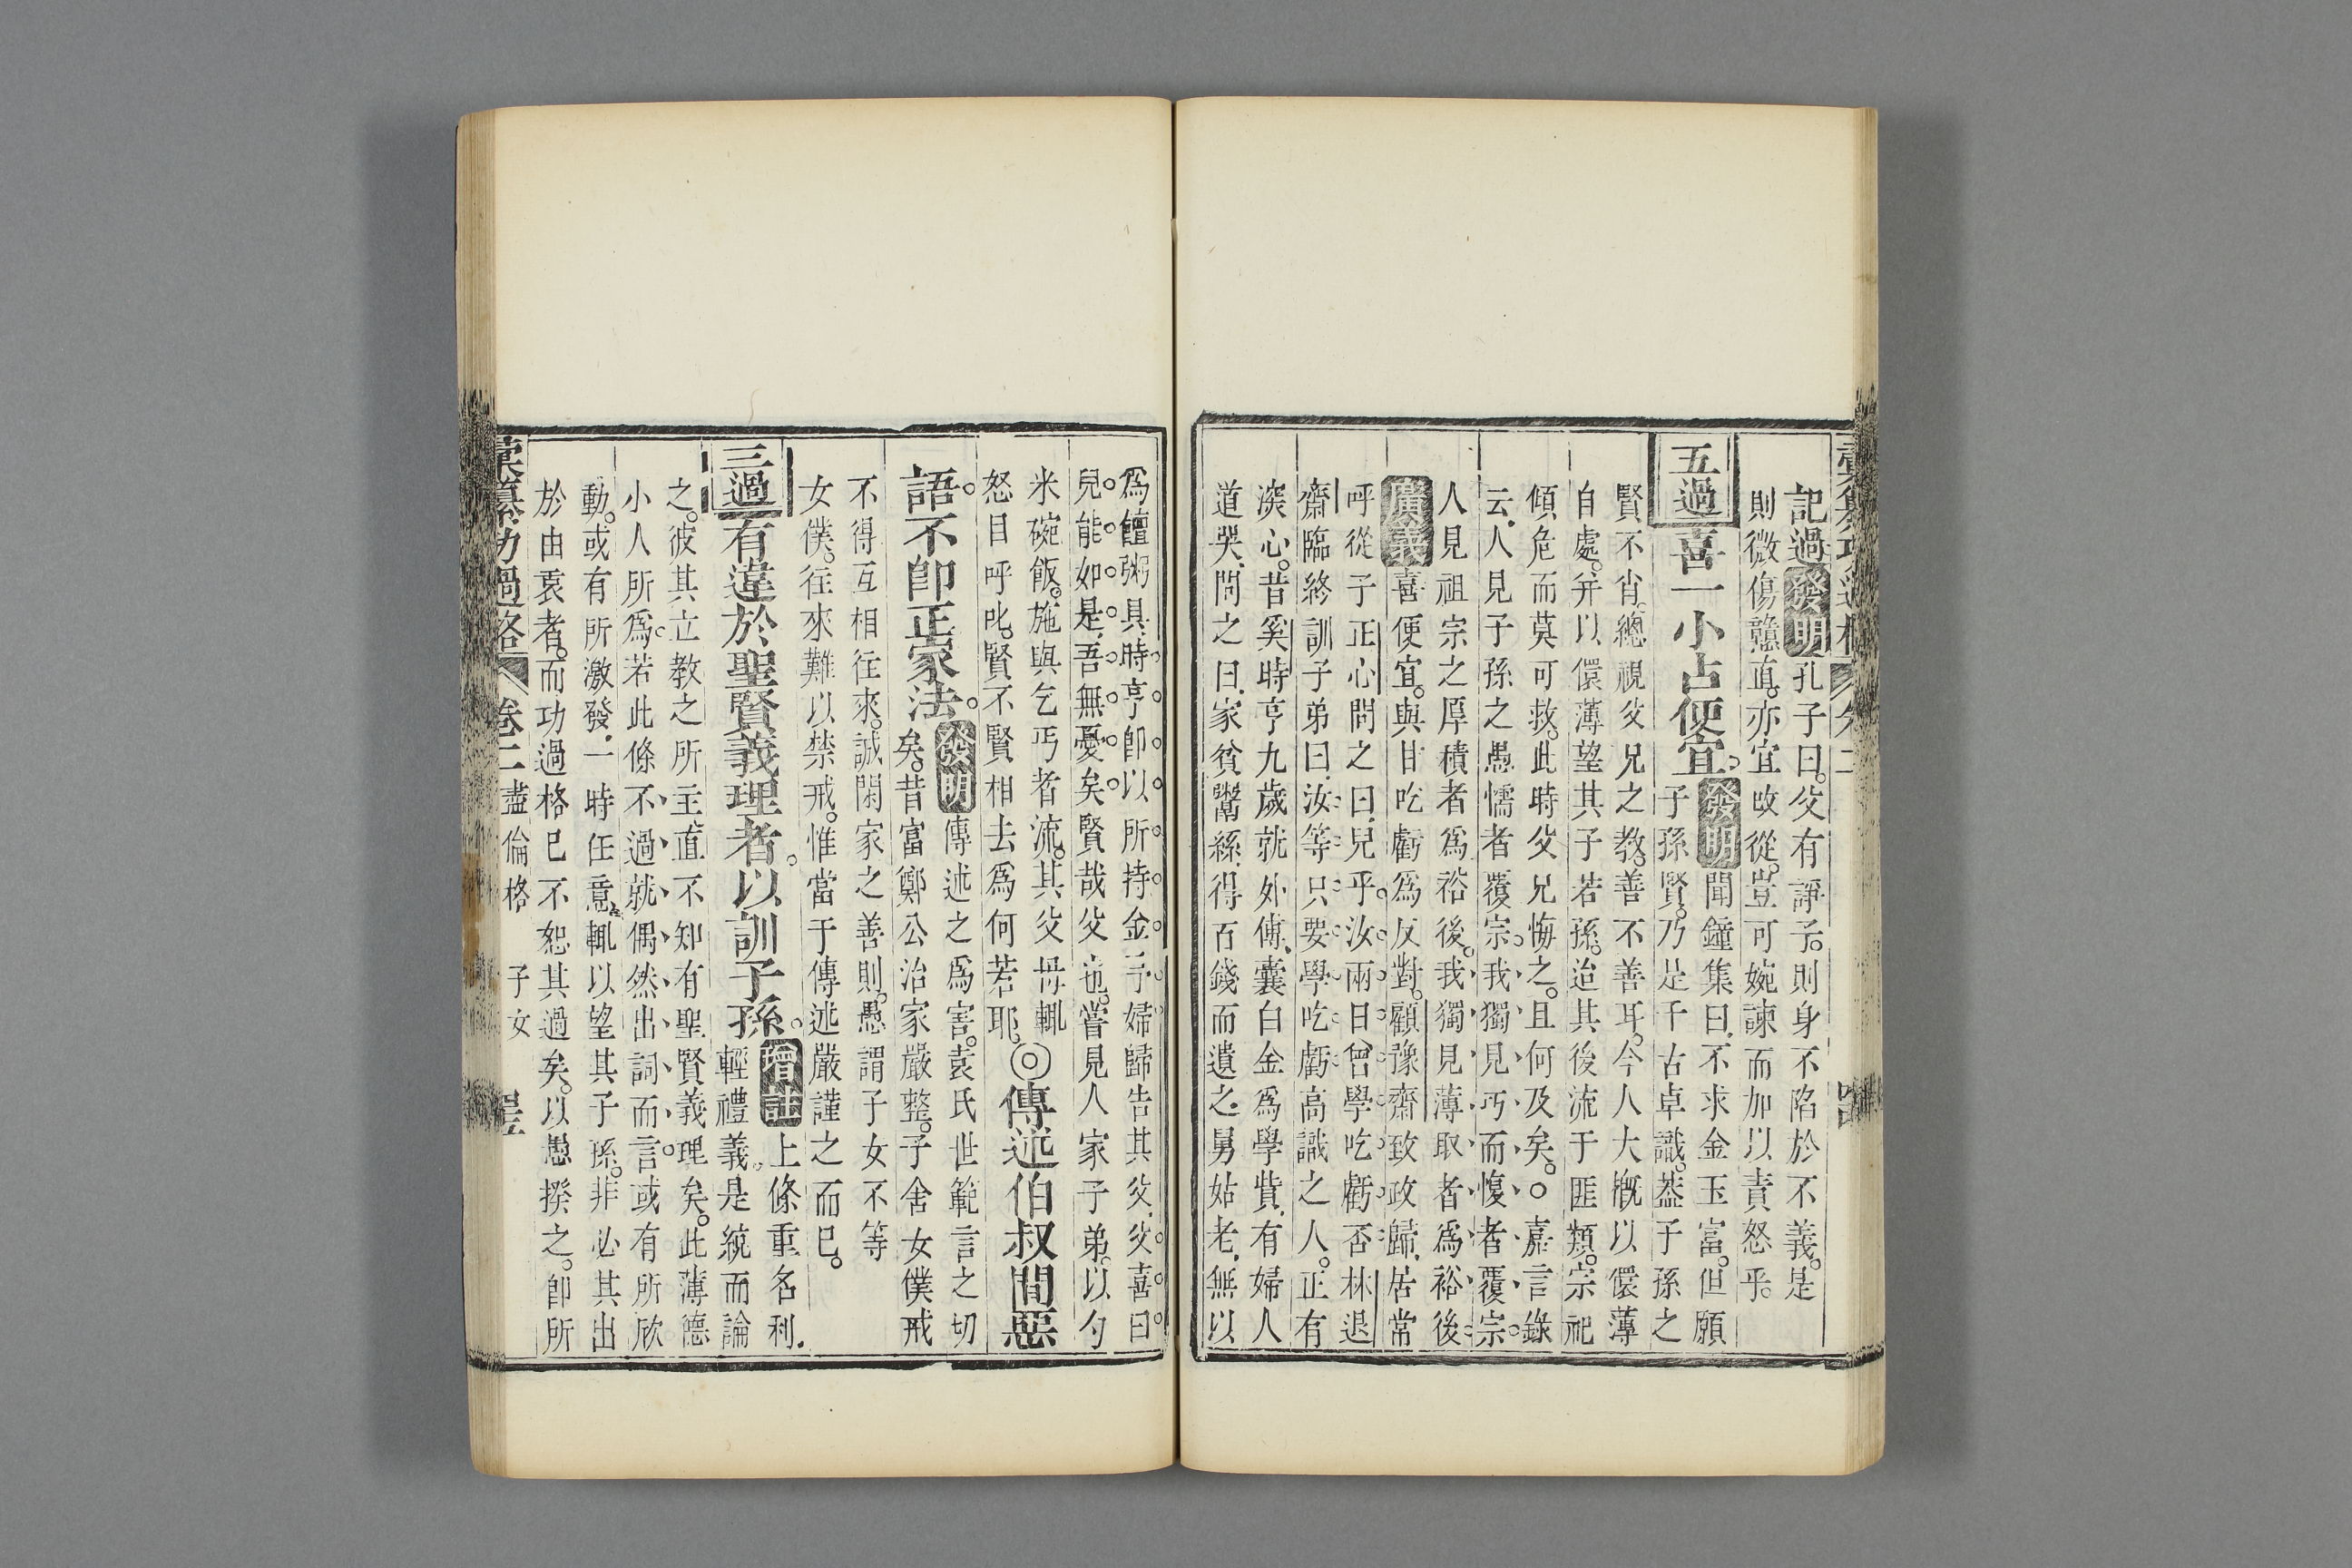 記過發明孔子曰。父有諍子。則身不陷於不義。是
則微傷戇直。亦宜改從。豈可婉諫而加以責怒乎。
五過喜一小占便宜。發明聞鐘集曰。不求金玉富。但願
子孫賢。乃是千古卓識。葢子孫之
賢不肖。總視父兄之教。善不善耳。今人大槪以儇薄
自處。并以儇薄望其子若孫。迨其後流于匪類。宗祀
傾危而莫可救。此時父兄悔之。且何及矣。○嘉言錄
云。人見子孫之愚懦者覆宗。我獨見巧而愎者覆宗。
人見祖宗之厚積者爲裕後。我獨見薄取者爲裕後。
廣義喜便宜。與甘吃虧爲反對。顧豫齋致政歸。居常
呼從子正心問之曰。兒乎。汝兩日曾學吃虧否。林退
齋臨終訓子弟曰。汝等只要學吃虧。高識之人。正有
深心。昔奚時亨九歲就外傅。囊白金爲學貲。有婦人
道哭。問之曰。家貧鬻絲。得百錢而遺之。舅姑老。無以
爲饘粥具。時亨卽以所持金予婦。歸告其父。父喜曰。
兒能如是。吾無憂矣。賢哉父也。嘗見人家子弟。以勺
米碗飯。施與乞丐者流。其父母輒
怒目呼叱。賢不賢相去爲何若耶。◎傳述伯叔間惡
語。不卽正家法。發明傳述之爲害。袁氏世範言之切
矣。昔富鄭公治家嚴整。子舍女僕戒
不得互相往來。誠閑家之善則。愚謂子女不等
女僕。往來難以禁戒。惟當于傳述嚴謹之而已。
三過有違於聖賢義理者。以訓子孫。增註上條重名利。
輕禮義。是統而論
之。彼其立教之所主。直不知有聖賢義理矣。此薄德
小人所爲。若此條不過就偶然出詞而言。或有所欣
動。或有所激發。一時任意。輒以望其子孫。非必其出
於由衷者。而功過格已不恕其過矣。以愚揆之。卽所
彙纂功過格 卷二 盡倫格 子女